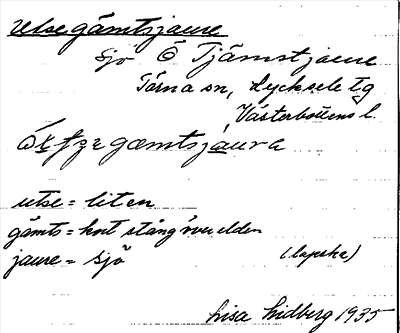 Utsegämtsjaure
Sjö Ö Tjämstjaure
Tärna sn, Lycksele lg
Västerbottens l.
gæmtsjäura
utse = liten
gämts = kort stång över elden
jaure = sjö (lapska)
Lisa Lidberg 1935